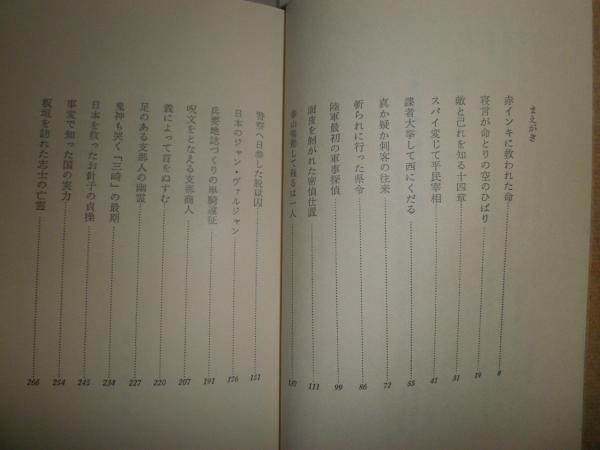 まえがき
赤インキに救われた命 8
寝言が命とりの空のひばり 19
敵と己れを知る十四章 31
スパイ変じて平民宰相 41
諜者大挙して西にくだる 55
真か疑か刺客の往来 72
斬られに行った県令 86
陸軍最初の軍事探偵 99
面皮を剝がれた密偵仕置 111
泰山鳴動して残るは一人 137
警察へ日参した脱獄囚 151
日本のジャン・ヴァルジャン 176
兵要地誌づくりの単騎遠征 191
呪文をとなえる支那商人 207
義によって首をぬすむ 220
足のある支那人の幽霊 227
鬼神も哭く「三崎」の最期 234
日本を救ったお針子の貞操 245
事変で知った国の実力 254
板垣を訪れた志士の亡霊 266